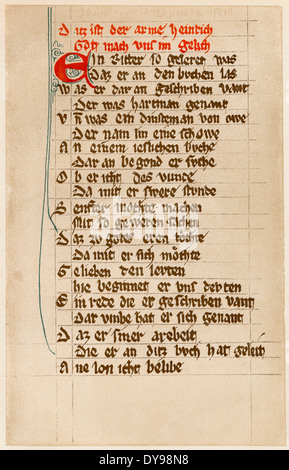 Ditz ist der arme heinrich
Got mach vns im gelich
Ein Ritter so geleret was
Daz er an den buchen las
Was er dar an geschriben vant
Der was hartman genant
Vn was ein dinstman von owe
Der nam im eine schowe
An einem ieslichen buche
Dar an begond er suche
Ob er icht des vunde
Da mit er swere stunde
Senfter mochte machen
Mit so geweren sachen
Daz zo gotes eren tochte
Da mit er sich mochte
Gelieben den levten
hie beginnet er vns devten
Ein rede die er geschriben vant
Dar vmbe hat er sich genant
Daz er siner arebeit
Die er an ditz buch hat geleit
Ane lon icht belibe
alamy
DY98N8
www.alamy.com